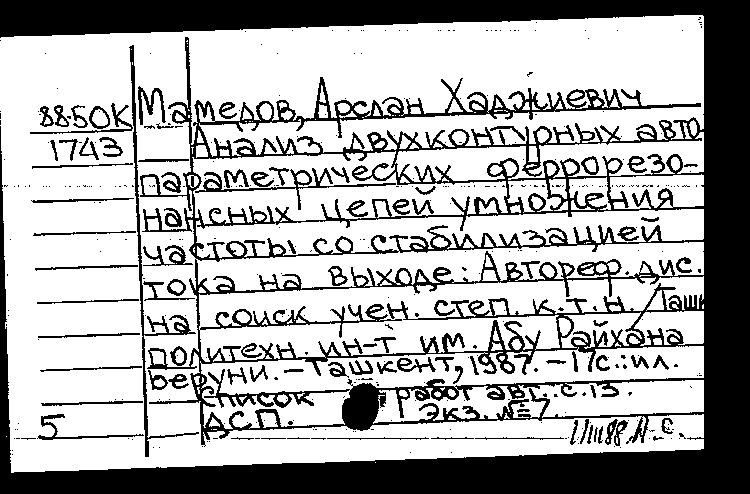 88-5ОК Мамедов, Арслан Хаджиевич
1743 Анализ двухконтурных авто-
параметрических феррорезо-
нансных цепей умножения
частоты со стабилизацией
тока на выходе: Автореф. дис.
на соиск учен. степ. к.т.н. / Ташк
политехн. ин-т им. Абу Райхана
Беруни. – Ташкент, 1987. – 17с.: ил.
Список работ авт.: с. 13.
5 ДСП. Экз. № 7.